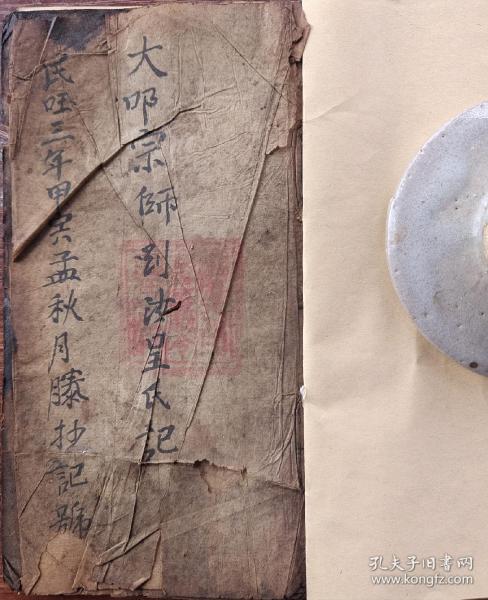 大叩宗師劉法呈氏記
民囯三年甲寅孟秋月謄抄記號
孔夫子旧书网
www.kongfz.com